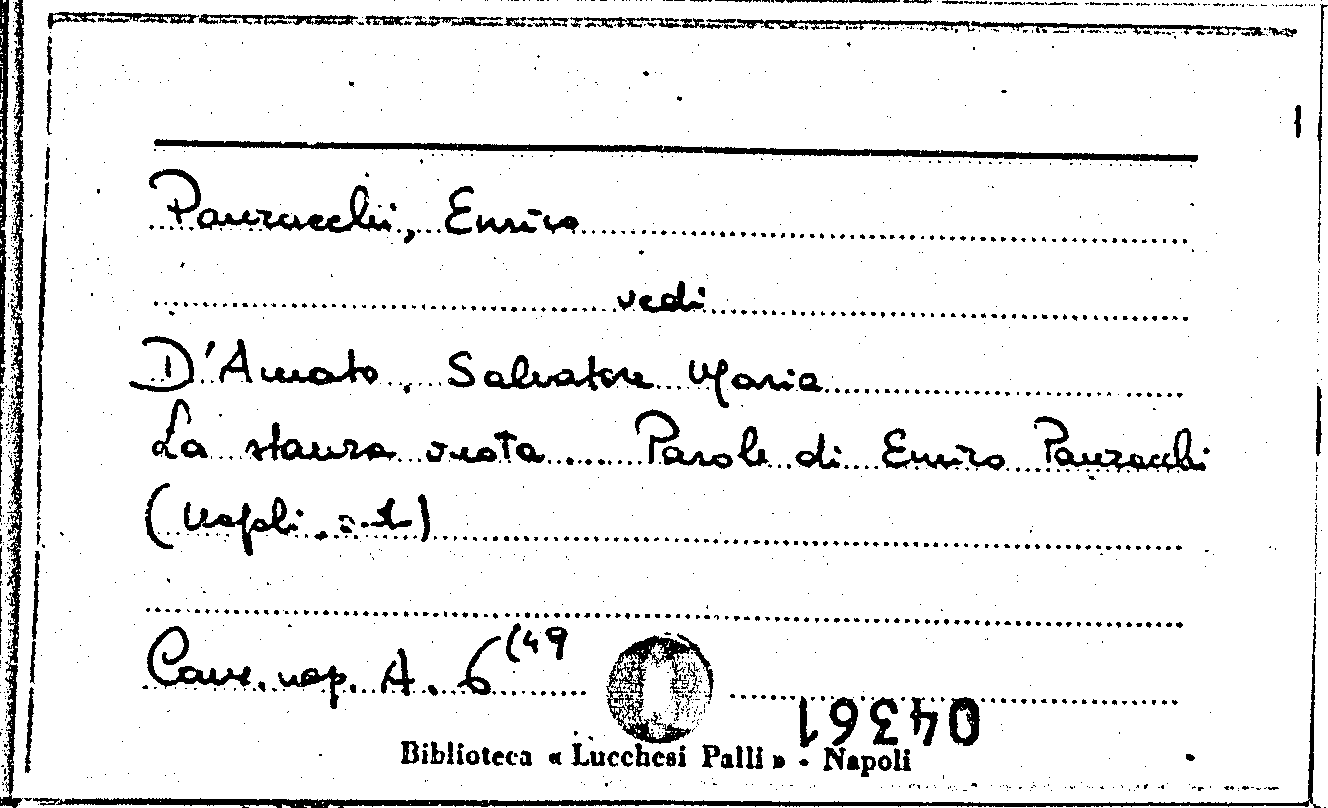 Panzacchi, Enrico
vedi
D'Amato, Salvatore Maria
La stanza vuota .... Parole di Enrico Panzacchi
(Napoli, s.d.)
Canz. nap. A. 6 (49
04361
Biblioteca « Lucchesi Palli » - Napoli